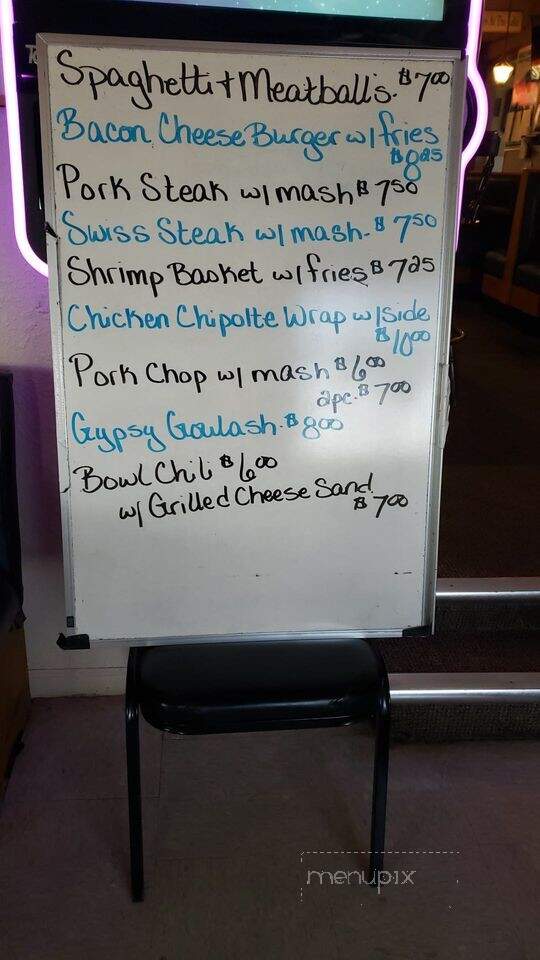 Spaghetti + Meatballs. $7.00
Bacon Cheese Burger w/ fries
$8.25
Pork Steak w/ mash $7.50
Swiss Steak w/ mash - $7.50
Shrimp Basket w/ fries $7.25
Chicken Chipolte Wrap w/ Side
$10.00
Pork Chop w/ mash $6.00
2pc. $7.00
Gypsy Goulash. $8.00
Bowl Chili $6.00
w/ Grilled Cheese Sand
$7.00
menupix